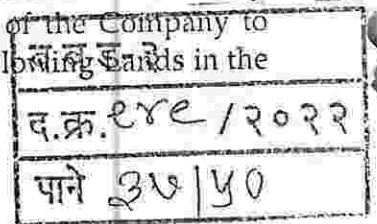 of the Company to
Bands in the
द.क्र. ९४९ / २०२२
पाने ३७ | ५०